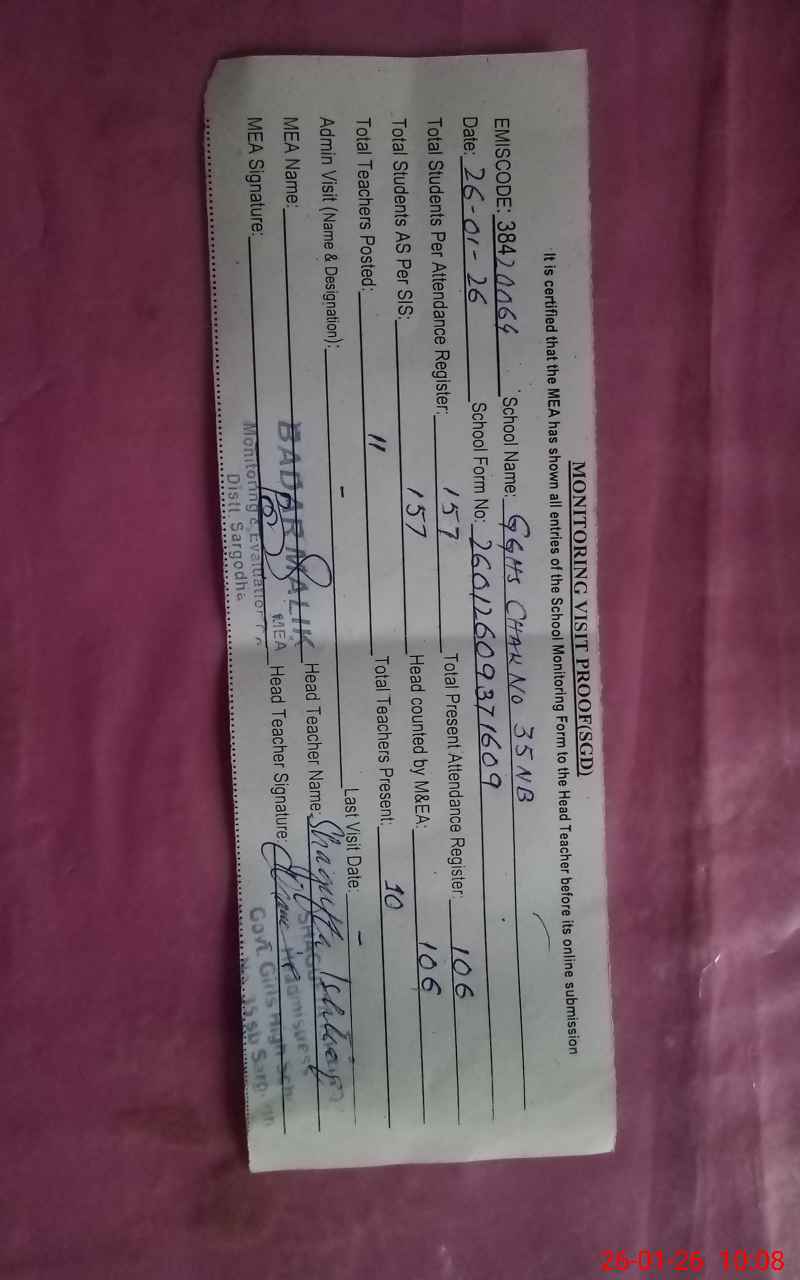 MONITORING VISIT PROOF(SGD)
It is certified that the MEA has shown all entries of the School Monitoring Form to the Head Teacher before its online submission
EMISCODE: 38420064 School Name: GGHS CHAK NO 35 NB
Date: 26-01-26 School Form No: 26012609371609
Total Students Per Attendance Register: 157 Total Present Attendance Register: 106
Total Students AS Per SIS: 157 Head counted by M&EA: 106
Total Teachers Posted: 11 Total Teachers Present: 10
Admin Visit (Name & Designation): - Last Visit Date: -
MEA Name: BADAR MALIK Head Teacher Name: Shagufta Ishtiaq
MEA Signature: MEA Head Teacher Signature:
Monitoring & Evaluation
Distt. Sargodha
Headmistress
Govt. Girls High Sch
26-01-26 10:08